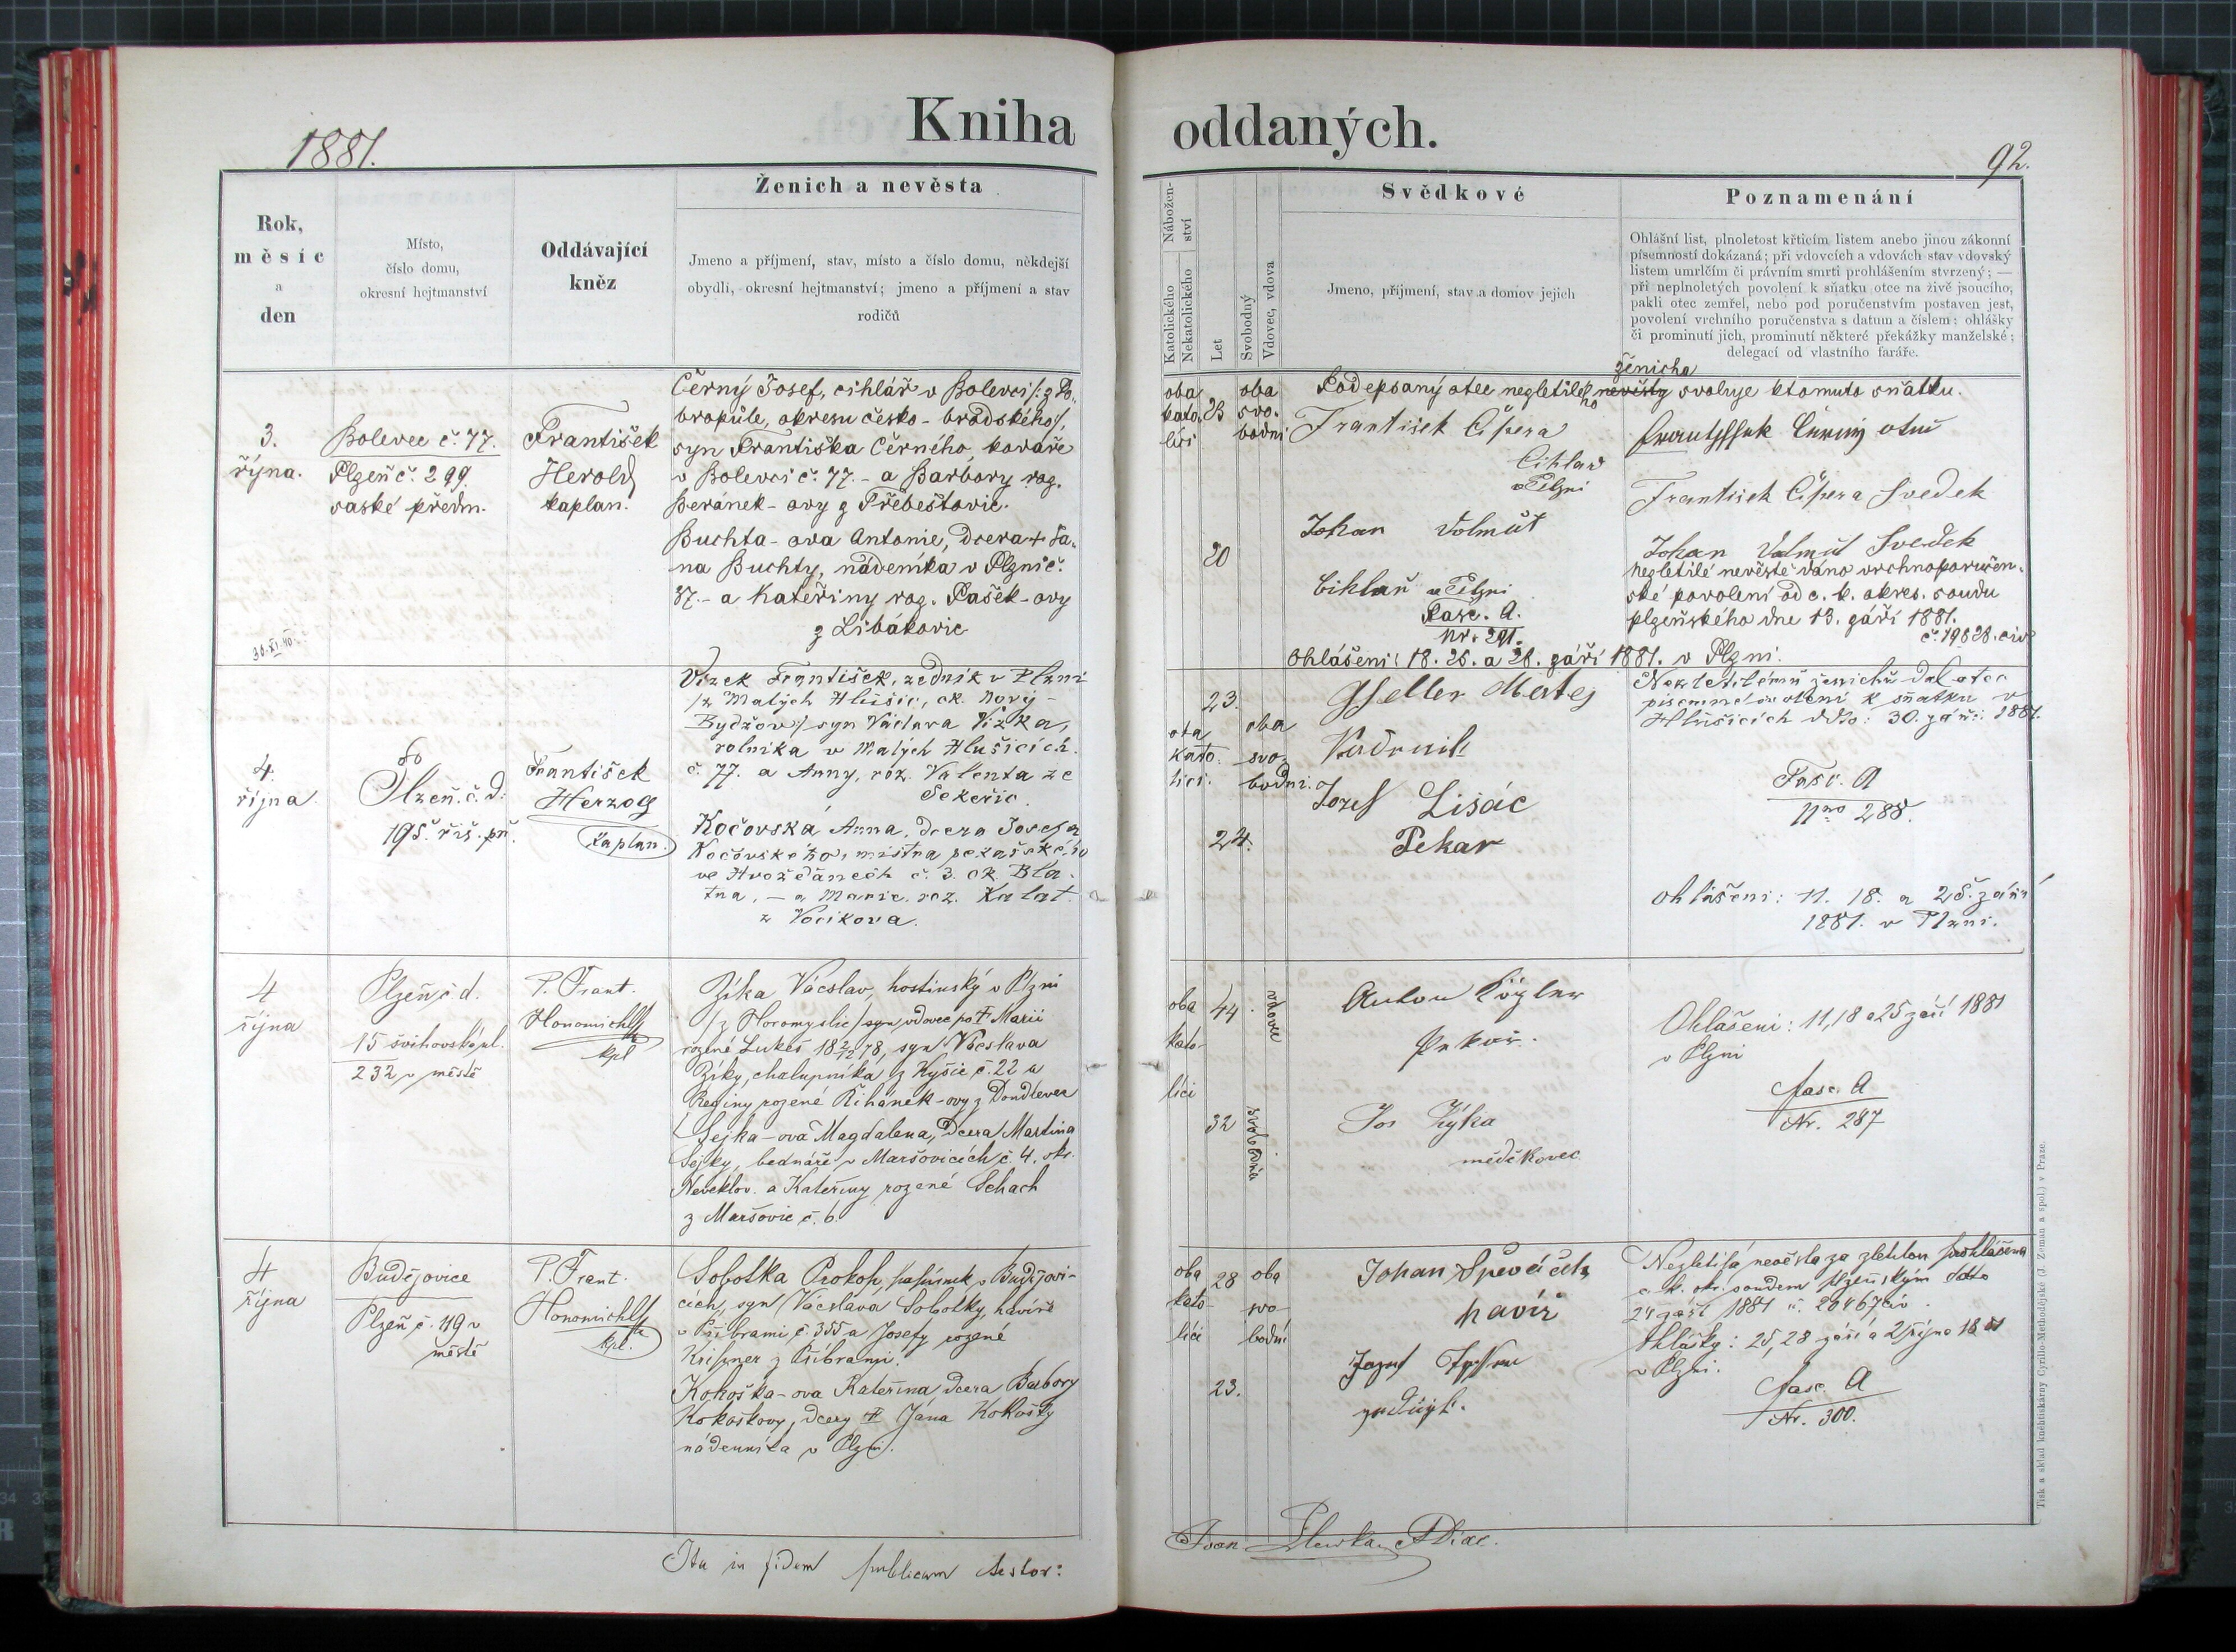 Kniha oddaných.
1881.
92.
Rok,
měsíc
a
den
Místo,
číslo domu,
okresní hejtmanství
Oddávající
kněz
Ženich a nevěsta
Jmeno a příjmení, stav, místo a číslo domu, někdejší
obydlí, okresní hejtmanství; jmeno a příjmení a stav
rodičů
Nábožen-
ství
Katolického
Nekatolického
Let
Svobodný
Vdovec, vdova
Svědkové
Jmeno, příjmení, stav a domov jejich
Poznamenání
Ohlášní list, plnoletost křticím listem anebo jinou zákonní
písemností dokázaná; při vdovcích a vdovách stav vdovský
listem umrlčím či právním smrti prohlášením stvrzený; —
při neplnoletých povolení k sňatku otce na živě jsoucího,
pakli otec zemřel, nebo pod poručenstvím postaven jest,
povolení vrchního poručenstva s datum a číslem; ohlášky
či prominutí jich, prominutí některé překážky manželské;
delegací od vlastního faráře.
3.
října.
Bolevec č. 77.
Plzeň č. 299.
saské předm.
František
Herold
kaplan.
Černý Josef, cihlář v Bolevci /: z Do-
bropůle, okresu česko-brodského/,
syn Františka Černého, kováře
v Bolevci č. 77. - a Barbory roz.
Beránek-ovy z Přebeštovic.
Buchta-ova Antonie, dcera + Ja-
na Buchty, nádeníka v Plzni č.
37. - a Kateřiny roz. Pašek-ovy
z Libákovic
30.XI.40.
oba
kato-
líci
23
20
oba
svo-
bodni
ženicha
Podepsaný otec nezletilého nevěsty svoluje k tomuto sňatku.
František Čipera
Cihlař
v Plzni
Johan Volmut
Cihlař v Plzni
Fasc. A.
Nr. 291.
Ohlášeni: 18. 25. a 28. září 1881. v Plzni.
František Čipera Svedek
Johan Volmut Svedek
Nezletilé nevěstě dáno vrchnoporučen-
ské povolení od c. k. okres. soudu
plzeňského dne 13. září 1881.
č. 19828. civ
4.
října
Plzeň. č. d.
195. řiš. př.
František
Herzog
kaplan.
Vízek František, zedník v Plzni
/z Malých Hlušic, ok. Nový-
Bydžov/ syn Václava Vízka,
rolníka v Malých Hlušicích
č. 77. a Anny, roz. Valenta ze
Sekeřic.
Kočovská Anna, dcera Josefa
Kočovského, mistra pekařského
ve Hvožďanech č. 3. ok. Bla-
tna, — a Marie, roz. Kalat.
z Vacíkova.
oba
kato-
líci.
23.
24.
oba
svo-
bodni.
Gseller Matej
Kadrnik
Jozef Lisác
Pekar
Nezletilému ženichu dal otec
písemné svolení k sňatku v
Hlušicích ddto: 30. září 1881.
Fasc. A
Nro 288.
ohlášeni: 11. 18. a 25. září
1881. v Plzni.
4
října
Plzeň č d.
15 švihovská ul.
232 v městě
P. Frant.
Honomichl
kpl
Zíka Václav, hostinský v Plzni
/z Horomyslic/ syn, vdovec po + Marii
rozené Lukeš, 18 2/12 78, syn Václava
Zíky, chalupníka z Kyšic č. 22 a
Reginy rozené Řihánek-ovy z Doudlevec
Sejka-ová Magdalena, dcera Martina
Sejky, bednáře v Maršovicích č. 4. okr.
Neveklov. a Kateřiny rozené Schach
z Maršovic č. 6.
oba
kato-
líci
44
32
vdovec
svobodna
Anton Kögler
Pekař.
Jos Zýka
mědikovec
Ohlášeni: 11, 18 a 25 září 1881
v Plzni
fasc. A
Nr. 287
4
října
Budějovice
Plzeň č. 119 v
městě
P. Frant.
Honomichl
kpl.
Sobotka Prokop, v Budějovi-
cích, syn Václava Sobotky, havíře
v Příbrami č. 355 a Josefy rozené
z Příbrami.
Kokoška-ova Kateřina, dcera Barbory
Kokoškovy, dcery + Jana Kokošky
nádenníka v Plzni.
oba
kato-
líci
28
23.
oba
svo-
bodní
Johan Spěváček
havíř
Nezletilá nevěsta za zletilou prohlášena
c. k. okr. soudem plzeňským ddto
24 září 1881 č. 20467 civ.
Ohlášky: 25, 28 září a 2 října 1881
v Plzni.
fasc. A
Nr. 300.
Ita in fidem publicam testor:
Tisk a sklad knihtiskárny Cyrillo-Methodějské (J. Zeman a spol.) v Praze.